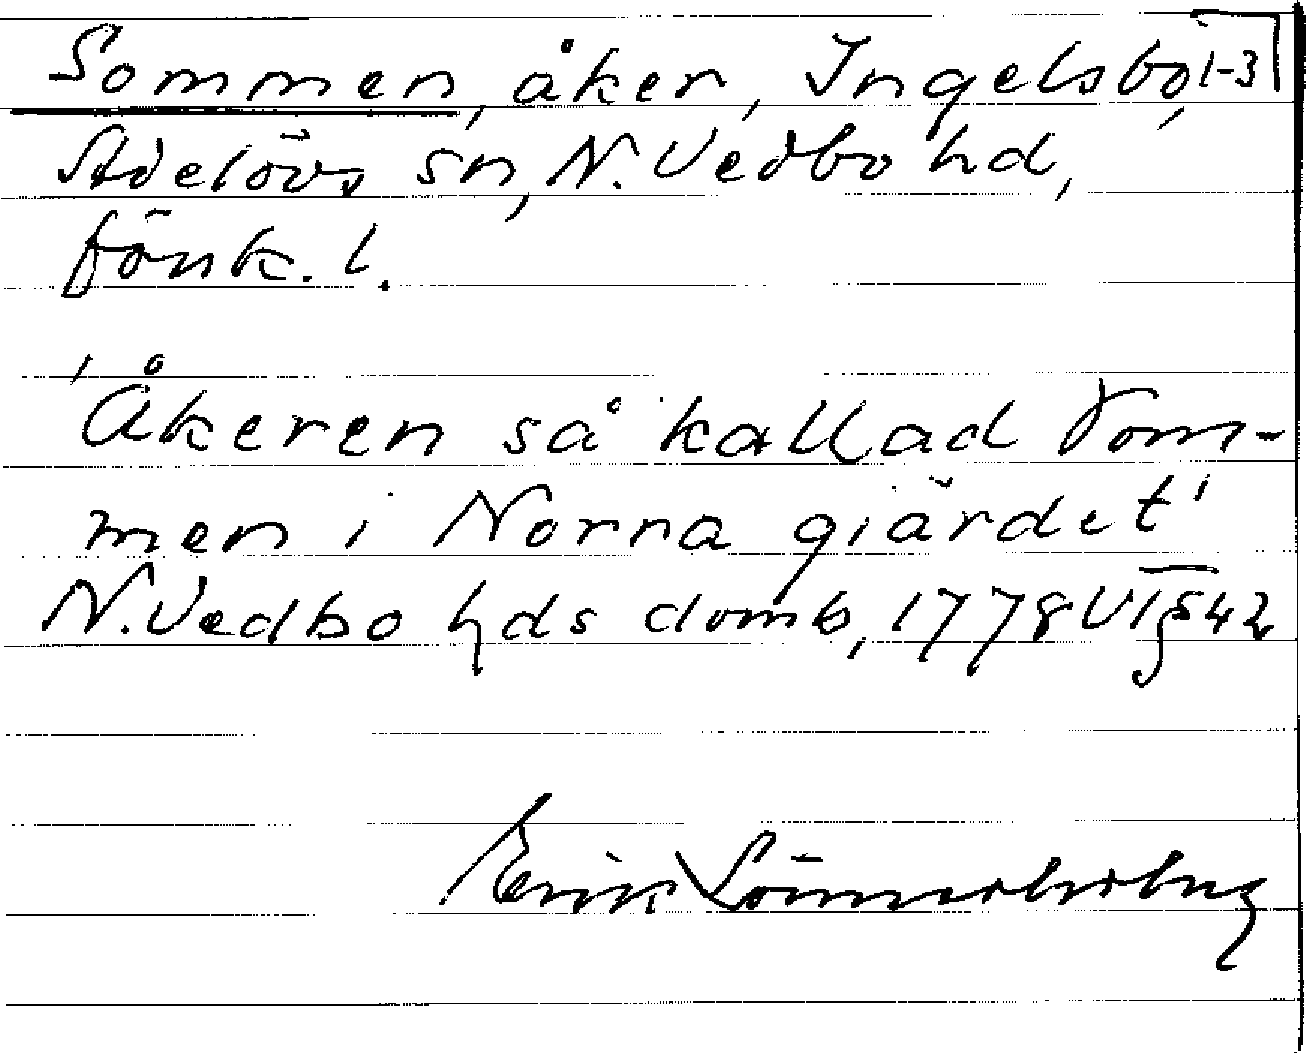 Sommen, åker, Ingelsbo, 1-3
Adelövs sn, N. Vedbo hd,
Jönk. l.
'Åkeren så kallad Som-
men i Norra giärdet'
N. Vedbo hds domb, 1778 VI § 42
Erik